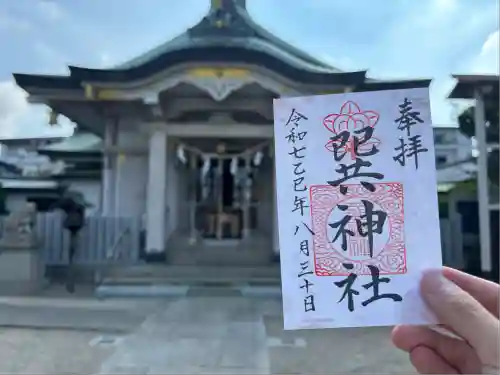 奉拝
巽共神社
令和七乙巳年八月三十日